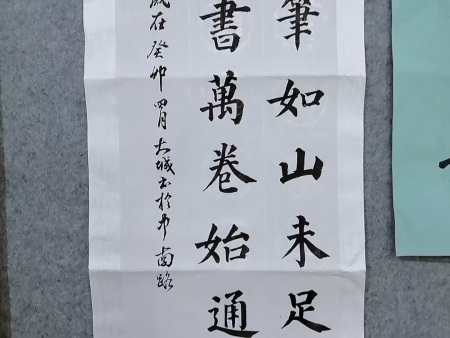 筆如山未足
書萬卷始通
歲在癸卯四月大城書於中南路